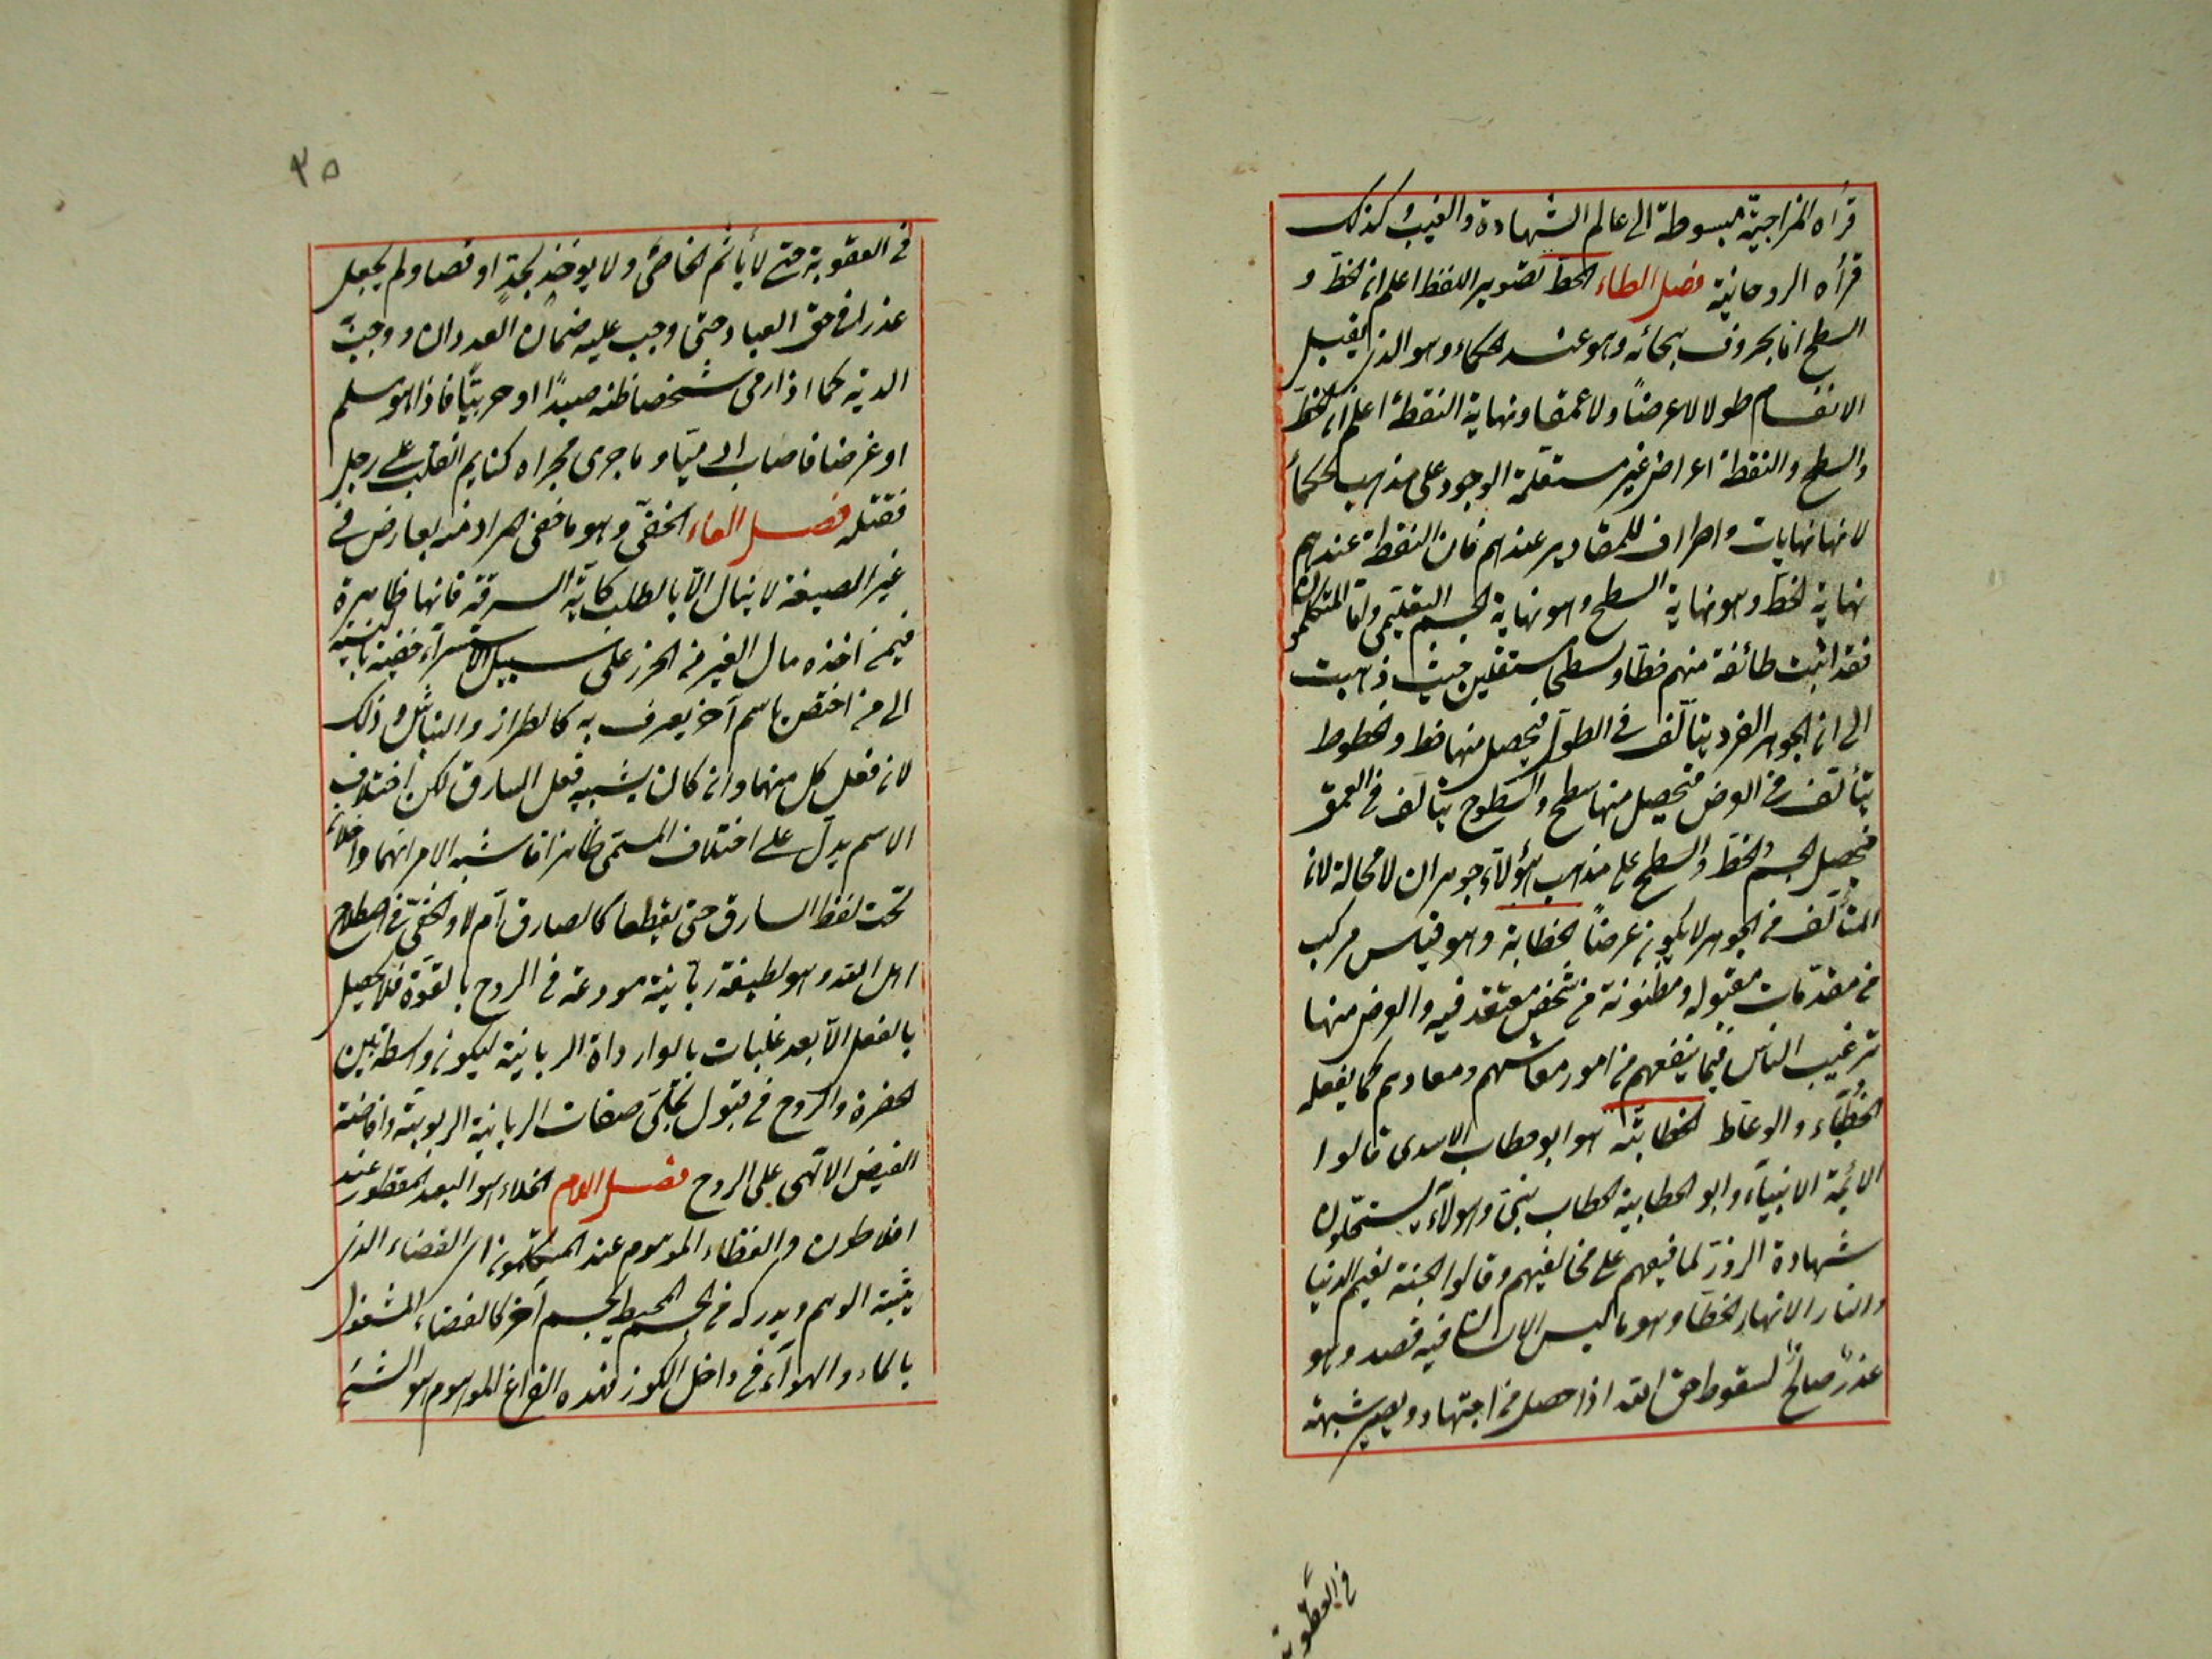 قراه المزاجية مبسوطة الى عالم الشهادة والغيب وكذلك
قراه الروحانية فصل الطاء الخط تصوير اللفظ اعلم ان الخط و
السطح انما بحروف هجائه وهو عند الحكماء وهو الذى يقبل
الانقسام طولا لا عرضًا ولا عمقا ونهاية النقطة اعلم ان الخط
والسطح والنقطة اعراض غير مستقلة الوجود على مذهب الحكماء
لانها نهايات واطراف للمقادير عندهم فان النقطة عندهم
نهاية الخط وهو نهاية السطح وهو نهاية الجسم التعليمى واما المتكلمون
فقد اثبت طائفة منهم خطا وسطحا مستقلين حيث ذهبت
الى ان الجوهر الفرد يتألف فى الطول فيحصل منها خط والخطوط
يتألف فى العرض فيحصل منها سطح والسطوح يتألف فى العمق
فيحصل الجسم والخط والسطح على مذهب هؤلاء جوهران لا محالة لان
المتألف من الجوهر لا يكون عرضًا الخطابة وهو قياس مركب
من مقدمات مقبوله ومظنونة من شخص معتقد فيه والعرض منها
ترغيب الناس فيما ينفعهم من امور معاشهم ومعادهم كما يفعله
الخطباء والوعاظ الخطابية هو ابو خطاب الاسدى قالوا
الائمة الانبياء وابو الخطابية الخطاب نبى وهؤلاء يستحلون
شهادة الزور لموافقيهم على مخالفيهم وقالوا الجنة نعيم الدنيا
والنار الانهار الخطأ وهو ما ليس الانسان فيه قصد وهو
عذر صالح لسقوط حق الله اذا حصل من اجتهاد ويصير شبهة
فى العقوبة
٣٥
فى العقوبة حتى لا يأثم الخاطئ ولا يوخذ بحد او قصاص ولم يجعل
عذرا فى حق العباد حتى وجب عليه ضمان العدوان ووجبت
الدية كما اذا رمى شخصا ظنه صيدًا او حربيًا فاذا هو مسلم
او غرضا فاصاب ادميا وما جرى مجراه كنايم انقلب على رجل
فقتله فصل الفاء الخفى وهو ما خفى المراد منه بعارض فى
غير الصيغة لا ينال الا بالطلب كآية السرقة فانها ظاهرة
فيمن اخذه مال الغير من الحرز على سبيل الاستسراء خفية بالنسبة
الى من اختص باسم آخر يعرف به كالطرار والنباش وذلك
لان فعل كل منهما وان كان يشبه فعل السارق لكن اختلاف
الاسم يدل على اختلاف المسمى ظاهرا فاشبه الامر انهما داخلان
تحت لفظ السارق حتى يقطعا كالصارق ام لا والخفى فى اصطلاح
اهل الله وهو لطيفة ربانية مودعة فى الروح بالقوة فلا يحصل
بالفعل الا بعد غلبات بالوارداة الربانية ليكون واسطة بين
الحضرة والروح فى قبول تجلى صفات الربانية الربوبية وافاضة
الفيض الالهى على الروح فصل اللام الخلاء هو البعد المفطور عند
افلاطون والفظاء الموهوم عند المتكلمون اى الفضاء الذى
يثبته الوهم ويدركه من الجسم المحيط بجسم آخر كالفضاء المشغول
بالماء والهوآء فى داخل الكوز فهذه الفراغ الموهوم هو الشئ